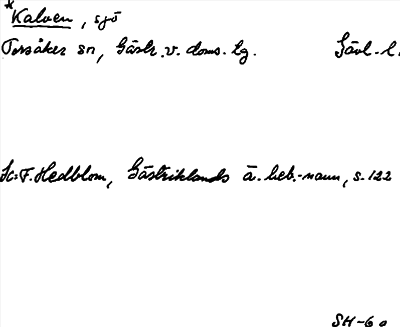 *Kalven, sjö
Torsåker sn, Gästr. v. doms. lg. Gävl. l.
Se: F. Hedblom, Gästriklands ä. beb.-namn, s. 122
SH-60